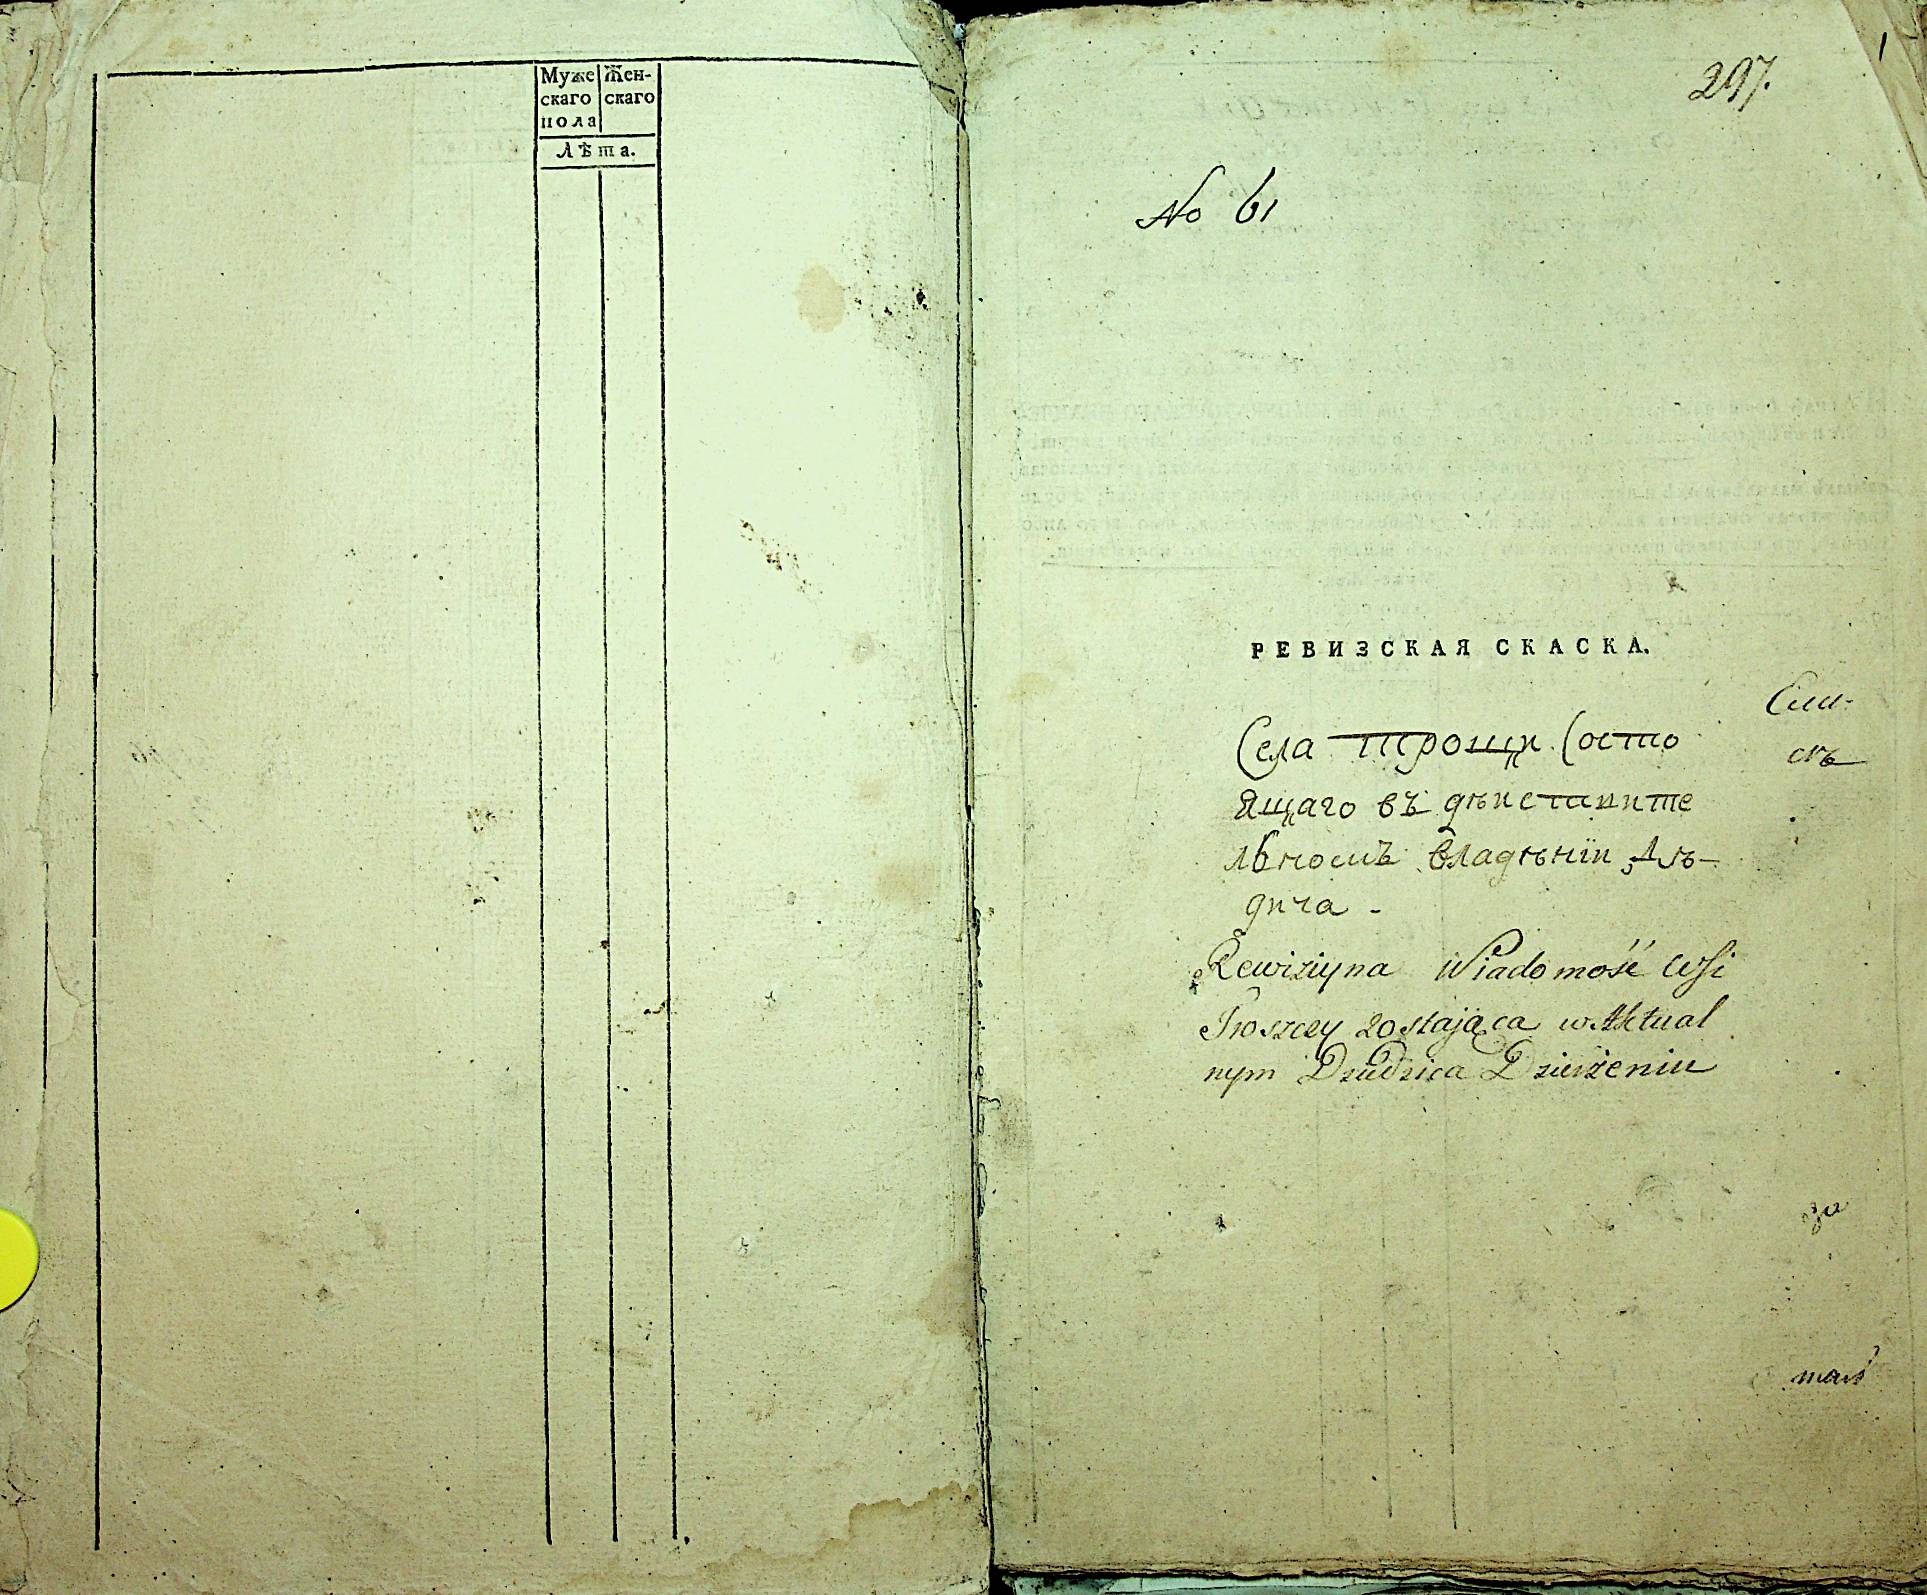 Муже Жен-
скаго скаго
пола
Лѣта.
1
297.
No 61
РЕВИЗСКАЯ СКАСКА.
Села Трощи Состо
ящаго въ дѣиствите
льномъ владѣнїи Дѣ-
дича -
Rewiziyna Wiadomość Wsi
Troszczy zostająca w Aktual
nym Dziedzica Dzierżeniu
за